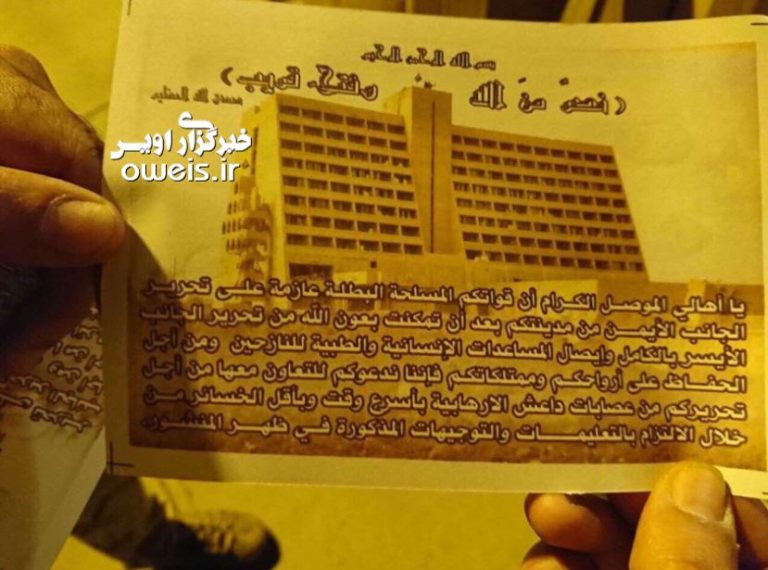 بسم الله الرحمن الرحيم
( نصرٌ منَ الله وفتحٌ قريب )
صدق الله العظيم
خبرگزاری اویس
oweis.ir
يا أهالي الموصل الكرام أن قواتكم المسلحة البطلة عازمة على تحرير
الجانب الأيمن من مدينتكم بعد أن تمكنت بعون الله من تحرير الجانب
الأيسر بالكامل وايصال المساعدات الإنسانية والطبية للنازحين ومن أجل
الحفاظ على أرواحكم وممتلكاتكم فإننا ندعوكم للتعاون معها من أجل
تحريركم من عصابات داعش الارهابية بأسرع وقت وبأقل الخسائر من
خلال الالتزام بالتعليمات والتوجيهات المذكورة في ظهر المنشور.